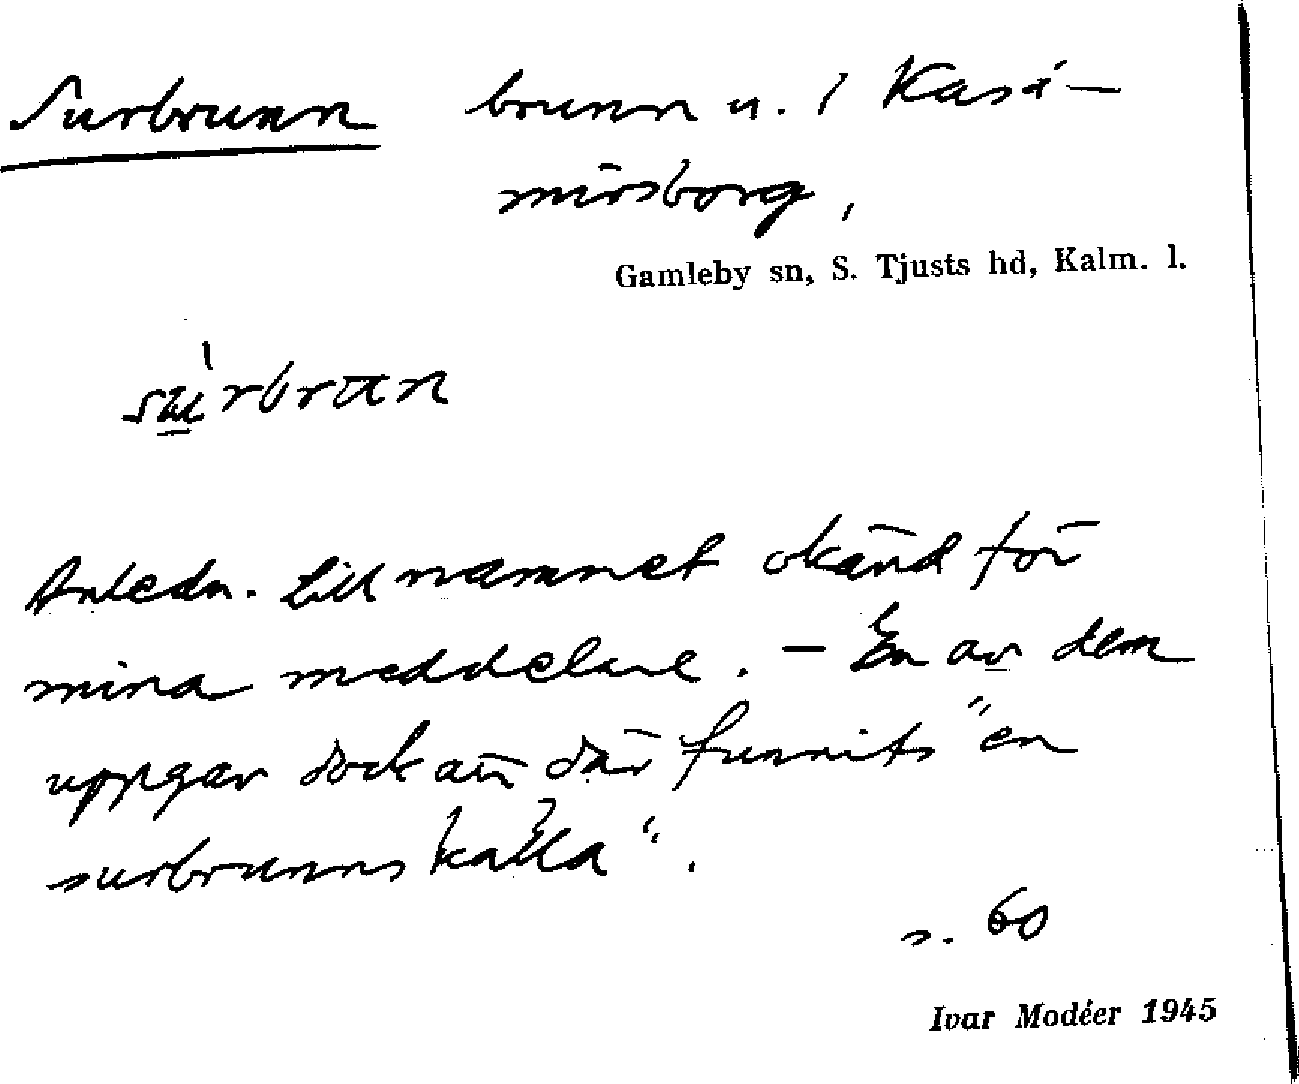 Surbrunn brunn u. / Kasi-
mirsborg,
Gamleby sn, S. Tjusts hd, Kalm. l.
surbrun
Anledn. till namnet okänd för
mina meddelare. – En av dem
uppgav dock att där funnits "en
surbrunnskälla".
s. 60
Ivar Modéer 1945